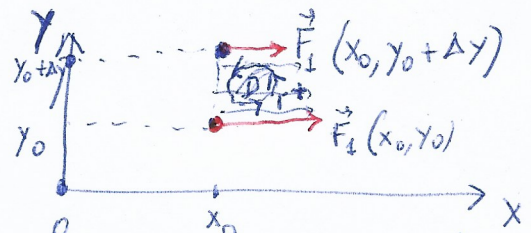 Y
y₀+Δy
F⃗₁ (x₀, y₀+Δy)
D
y₀
F⃗₁ (x₀, y₀)
0
x₀
X